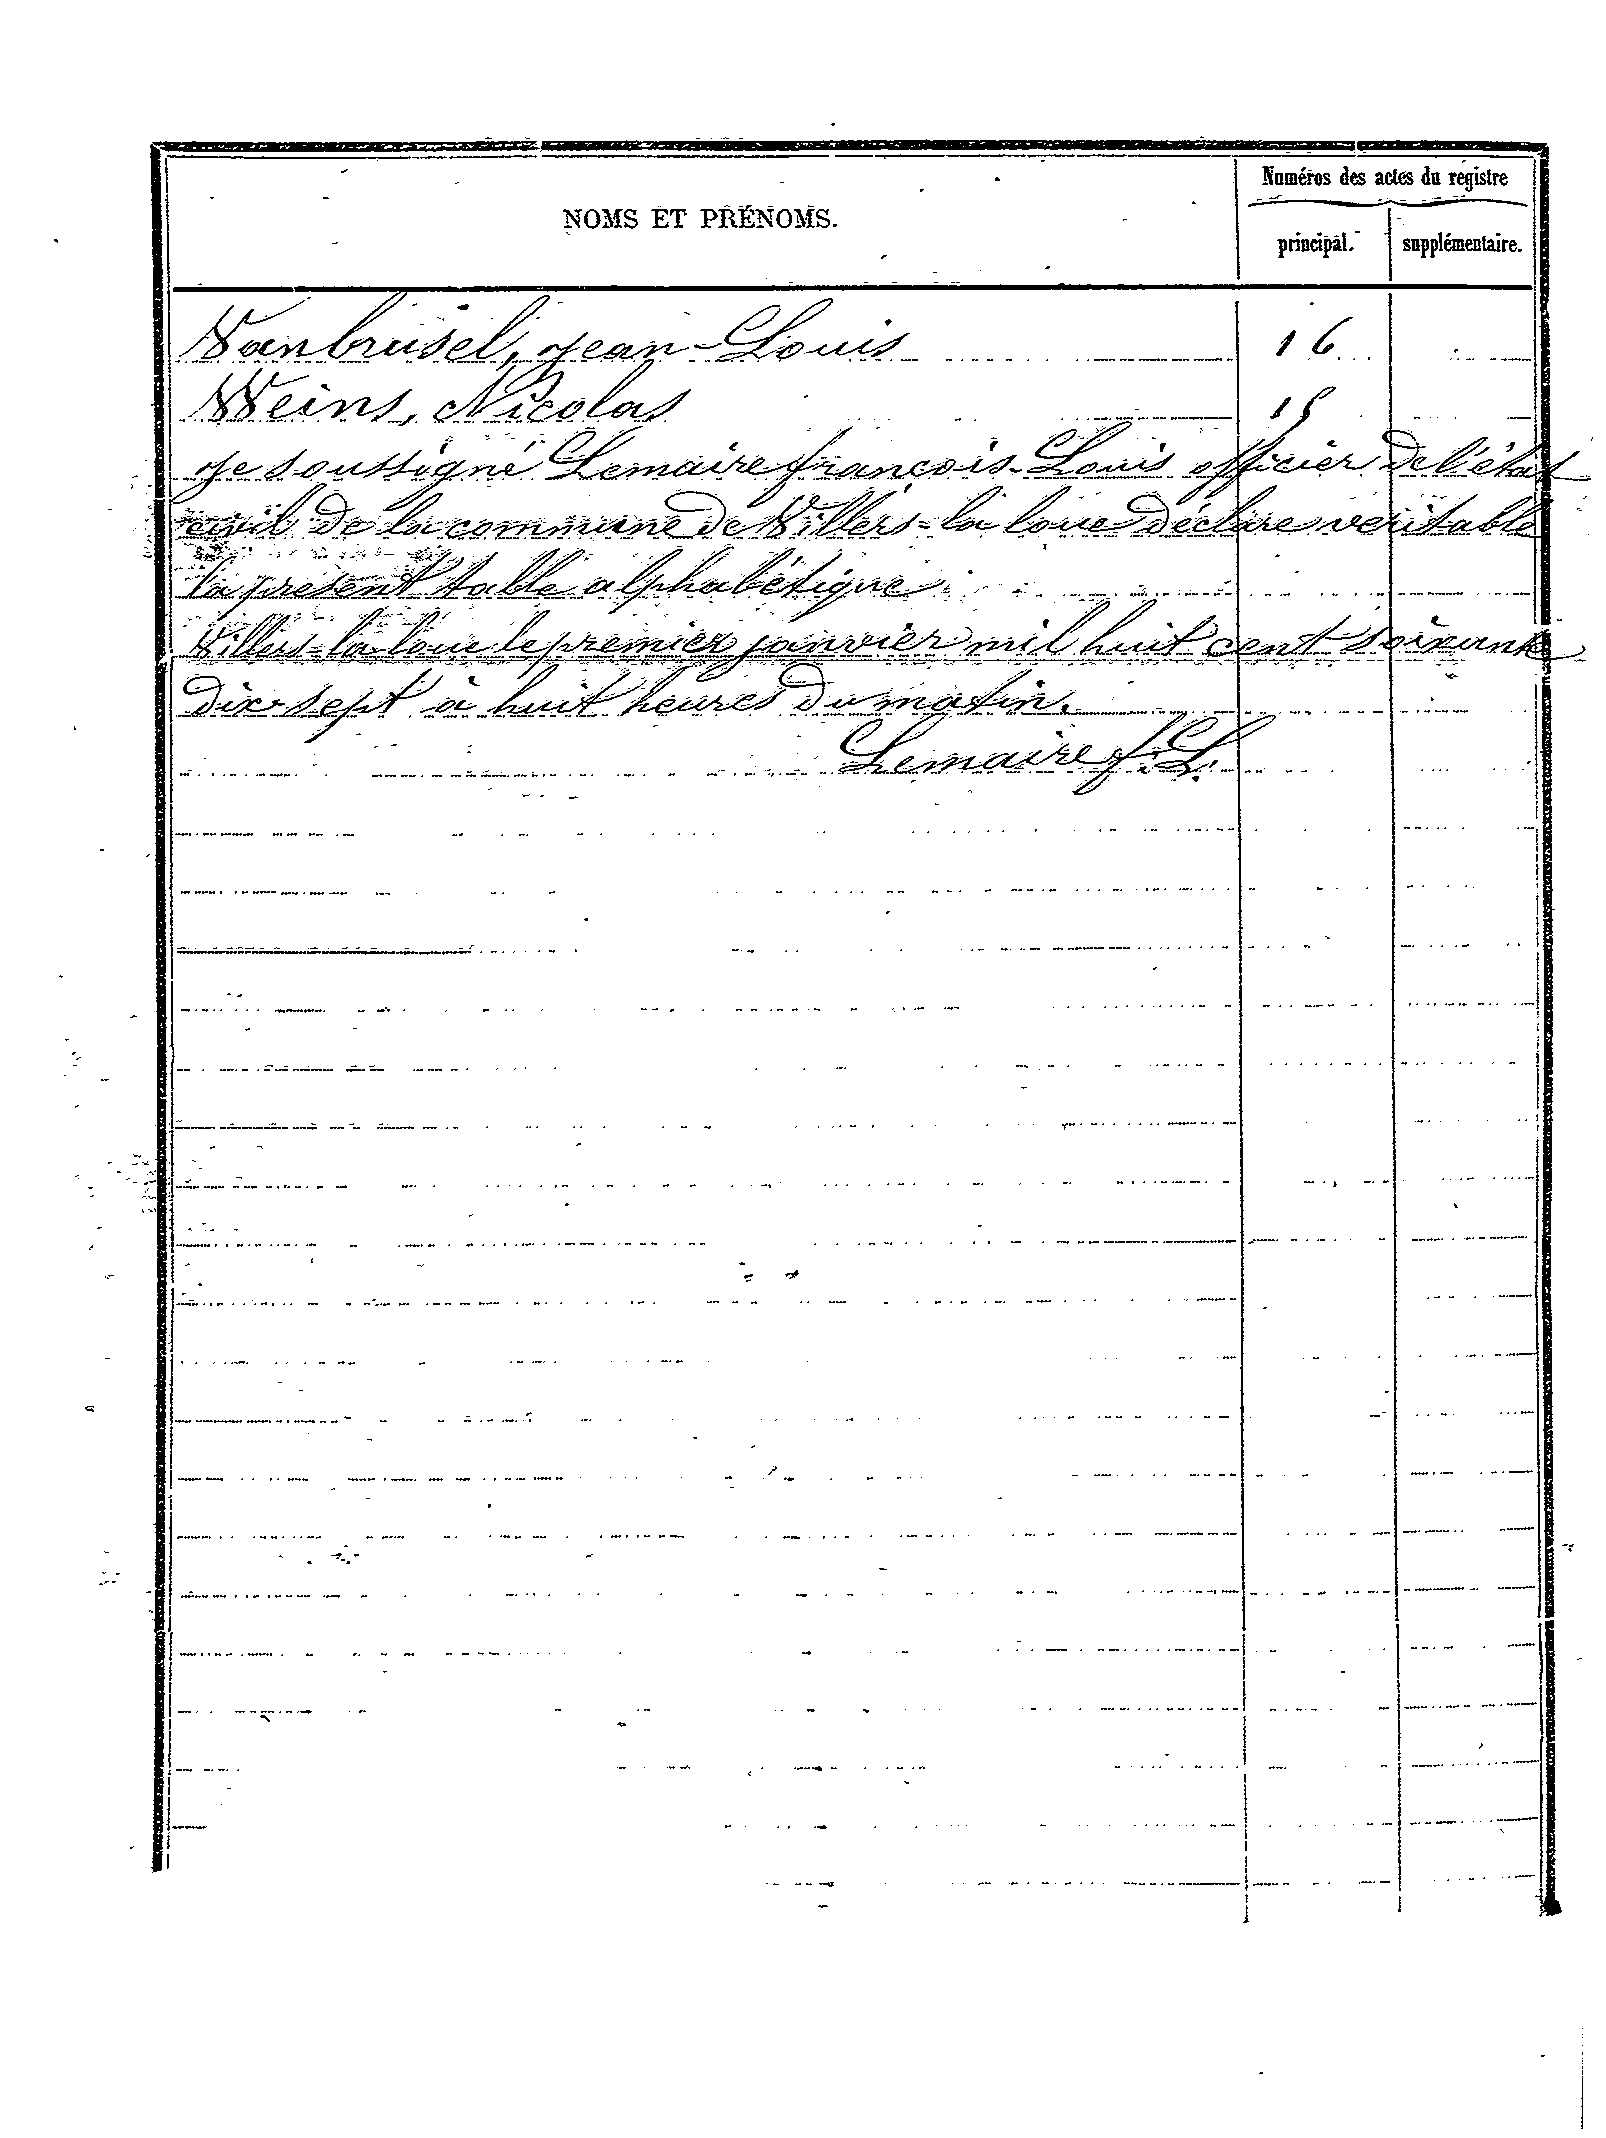 Numéros des actes du registre
NOMS ET PRÉNOMS.
principal. supplémentaire.
Vanbrusel, Jean-Louis 16
Weins, Nicolas 15
Je soussigné Lemaire françois-Louis officier de l'état
civil de la commune de Villers-la loue déclare veritable
la présent table alphabétique.
Villers-la-loue le premier janvier mil huit cent soixante
dix-sept à huit heures du matin.
Lemaire f. L.